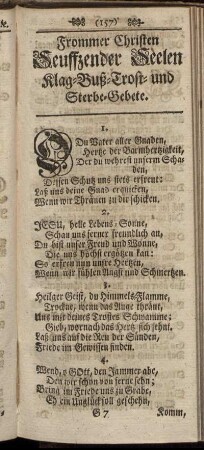 (157)
Frommer Christen
Seuffzender Seelen
Klag-Buß-Trost- und
Sterbe-Gebete.
1.
O Du Vater aller Gnaden,
Hertze der Barmhertzigkeit,
Der du wehrest unserm Scha-
den,
Dessen Schutz uns stets erfreut:
Laß uns deine Gnad erquicken,
Wenn wir Thränen zu dir schicken.
2.
JESU, helle Lebens-Sonne,
Schau uns ferner freundlich an,
Du bist unser Freud und Wonne,
Die uns höchst ergötzen kan:
So erfreu nun unsre Hertzen,
Wenn wir fühlen Angst und Schmertzen.
3.
Heilger Geist, du Himmels-Flamme,
Trockne, wenn das Auge thränt,
Uns mit deines Trostes Schwamme;
Gieb, wornach das Hertz sich sehnt,
Laß uns auf die Reu der Sünden,
Friede im Gewissen finden.
4.
Wend, o GOtt, den Jammer abe,
Den wir schon von ferne sehn;
Bring im Friede uns zu Grabe,
Eh ein Unglück soll geschehn,
G 7 Komm,